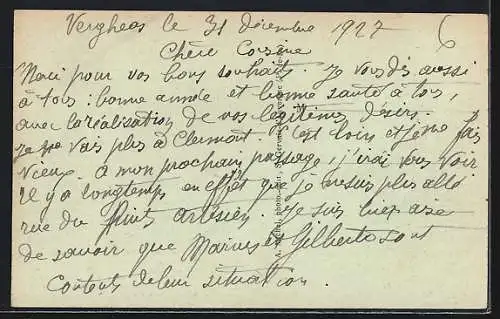 Vergheas le 31 décembre 1927
Chère Cousine
Merci pour vos bons souhaits. Je vous dis aussi
à tous : bonne année et bonne santé à tous,
avec la réalisation de vos légitimes désirs.
Je ne vais plus à Clermont. C'est loin et je me fais
vieux. A mon prochain passage, j'irai vous voir
Il y a longtemps en effet que je ne suis plus allé
rue du Puits artésien. Je suis bien aise
de savoir que Marius et Gilberte sont
contents de leur situation.
6